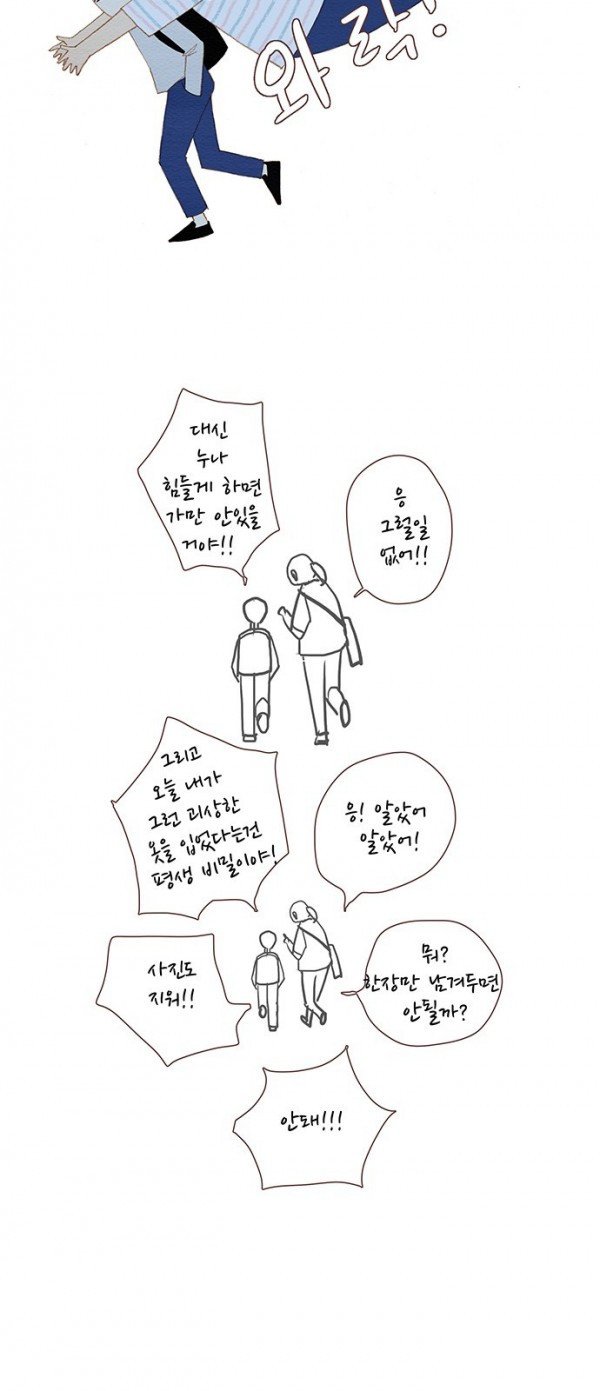 와락!
대신
누나
힘들게 하면
가만 안있을
거야!!
응
그럴일
없어!!
그리고
오늘 내가
그런 괴상한
옷을 입었다는건
평생 비밀이야!
응! 알았어
알았어!
사진도
지워!!
뭐?
한장만 남겨두면
안될까?
안돼!!!